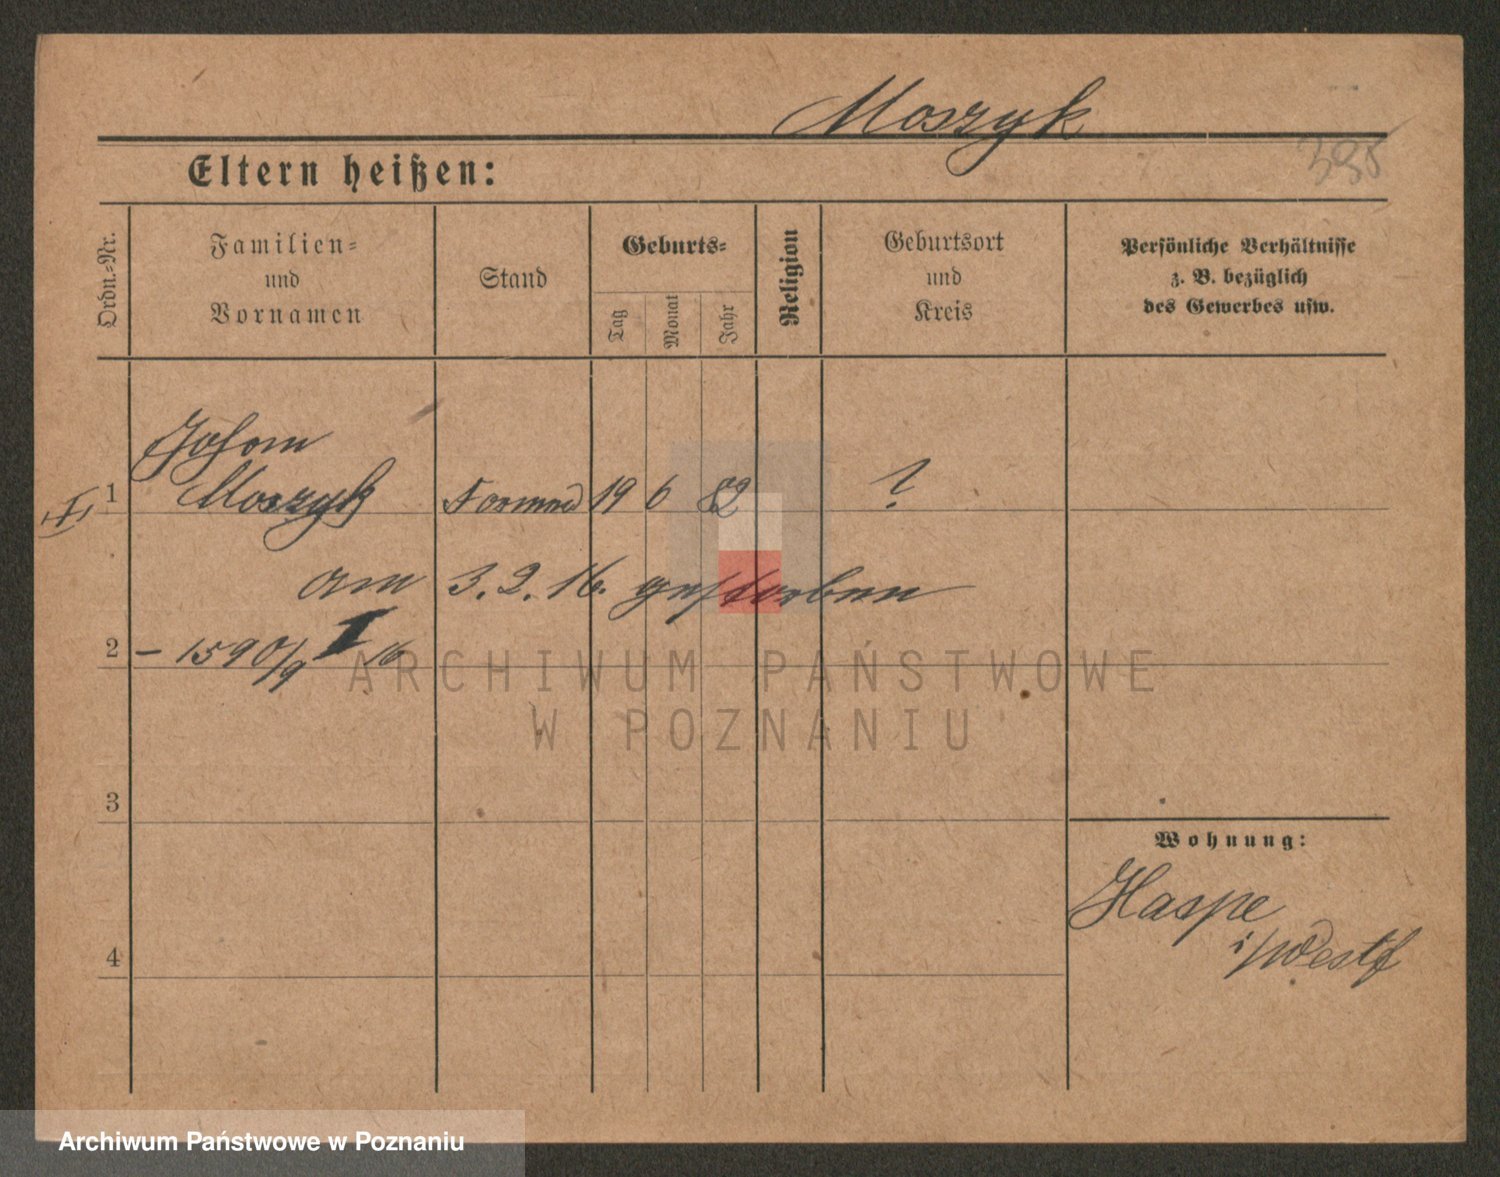 Moszyk
395
Eltern heißen:
Ordn.-Nr.
Familien-
und
Vornamen
Stand
Geburts-
Tag
Monat
Jahr
Religion
Geburtsort
und
Kreis
Persönliche Verhältnisse
z. B. bezüglich
des Gewerbes usw.
Johann
1 Moszyk Former 19 6 82 ?
am 3. 2. 16. gestorben
2 – 1590/9 I 16
ARCHIWUM PAŃSTWOWE
W POZNANIU
3
Wohnung:
Haspe
i/Westf
4
Archiwum Państwowe w Poznaniu